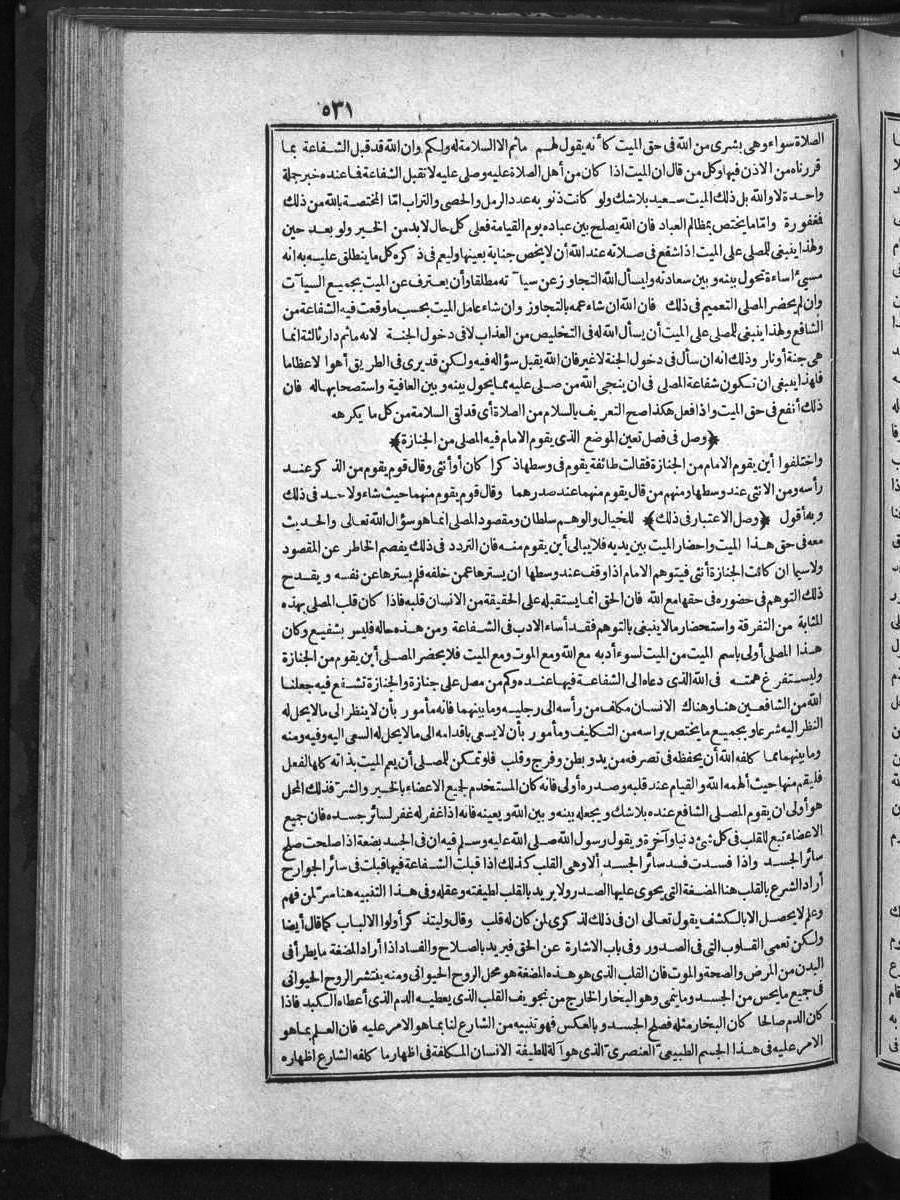 ٥٣١
الصلاة سواء وهى بشرى من الله فى حق الميت كأنه يقول لهم ماثم الا السلامة له ولكم وان الله قد قبل الشفاعة بما
قررناه من الاذن فيها وكل من قال ان الميت اذا كان من أهل الصلاة عليه وصلى عليه لا تقبل الشفاعة فما عنده خبر جلة
واحدة لا والله بل ذلك الميت سعيد بلا شك ولو كانت ذنوبه عدد الرمل والحصى والتراب امّا المختصة بالله من ذلك
فغفورة وامّا ما يختص بمظالم العباد فان الله يصلح بين عباده يوم القيامة فعلى كل حال لا بد من الخير ولو بعد حين
ولهذا ينبغى للمصلى على الميت اذا شفع فى صلاته عند الله أن لا يخص جناية بعينها وليعم فى ذكره كل ما ينطلق عليه به انه
مسىء اساءة تحول بينه وبين سعادته وليسأل الله التجاوز عن سيآته مطلقا وأن يعترف عن الميت بجميع السيآت
وان لم يحضر المصلى التعميم فى ذلك فان الله ان شاء عمه بالتجاوز وان شاء عامل الميت بحسب ما وقعت فيه الشفاعة من
الشافع ولهذا ينبغى للمصلى على الميت أن يسأل الله له فى التخليص من العذاب لا فى دخول الجنة لانه ماثم دار ثالثة انما
هى جنة أو نار وذلك انه ان سأل فى دخول الجنة لا غير فان الله يقبل سؤاله فيه ولكن قد يرى فى الطريق أهوالا عظاما
فلهذا ينبغى ان تكون شفاعة المصلى فى ان ينجى الله من صلى عليه مما يحول بينه وبين العافية واستصحابها له فان
ذلك أنفع فى حق الميت واذا فعل هكذا صح التعريف بالسلام من الصلاة أى قد لقى السلامة من كل ما يكرهه
﴿وصل فى فصل تعين الموضع الذى يقوم الامام فيه المصلى من الجنازة﴾
واختلفوا أين يقوم الامام من الجنازة فقالت طائفة يقوم فى وسطها ذكرا كان أو أنثى وقال قوم يقوم من الذكر عند
رأسه ومن الانثى عند وسطها ومنهم من قال يقوم منهما عند صدرهما وقال قوم يقوم منهما حيث شاء ولا حد فى ذلك
وبه أقول ﴿وصل الاعتبار فى ذلك﴾ للخيال والوهم سلطان ومقصود المصلى انما هو سؤال الله تعالى والحديث
معه فى حق هذا الميت واحضار الميت بين يديه فلا يبالى أين يقوم منه فان التردد فى ذلك يفصم الخاطر عن المقصود
ولا سيما ان كانت الجنازة أنثى فيتوهم الامام اذا وقف عند وسطها ان يسترها عمن خلفه فلم يسترها عن نفسه ويقدح
ذلك التوهم فى حضوره فى حقها مع الله فان الحق انما يستقبله على الحقيقة من الانسان قلبه فاذا كان قلب المصلى بهذه
المثابة من التفرقة واستحضار ما لا ينبغى بالتوهم فقد أساء الادب فى الشفاعة ومن هذه حاله فليس بشفيع وكان
هذا المصلى أولى باسم الميت من الميت لسوء أدبه مع الله ومع الموت ومع الميت فلا يحضر المصلى أين يقوم من الجنازة
وليستفرغ همته فى الله الذى دعاه الى الشفاعة فيها عنده وكم من مصل على جنازة والجنازة تشفع فيه جعلنا
الله من الشافعين هنا وهناك الانسان مكلف من رأسه الى رجليه وما بينهما فانه مأمور بأن لا ينظر الى ما لا يحل له
النظر اليه شرعا وبجميع ما يختص برأسه من التكليف ومأمور بأن لا يسعى باقدامه الى ما لا يحل له السعى اليه وفيه ومنه
وما بينهما مما كلفه الله أن يحفظه فى تصرفه من يد وبطن وفرج وقلب فلو تمكن للمصلى أن يعم الميت بذاته كلها لفعل
فليقم منها حيث ألهمه الله والقيام عند قلبه وصدره أولى فانه كان المستخدم لجميع الاعضاء بالخير والشرّ فذلك المحل
هو أولى ان يقوم المصلى الشافع عنده بلا شك ويجعله بينه وبين الله ويعينه فانه اذا غفر له غفر لسائر جسده فان جميع
الاعضاء تبع للقلب فى كل شئ دنيا وآخرة ويقول رسول الله صلى الله عليه وسلم فيه ان فى الجسد بضعة اذا صلحت صلح
سائر الجسد واذا فسدت فسد سائر الجسد ألا وهى القلب كذلك اذا قبلت الشفاعة فيها قبلت فى سائر الجوارح
أراد الشرع بالقلب هنا المضغة التى يحوى عليها الصدر ولا يريد بالقلب لطيفته وعقله وفى هذا التنبيه هنا سرّ لمن فهم
وعلم لا يحصل الا بالكشف يقول تعالى ان فى ذلك لذكرى لمن كان له قلب وقال وليتذكر أولوا الالباب كما قال أيضا
ولكن تعمى القلوب التى فى الصدور وفى باب الاشارة عن الحق فيريد بالصلاح والفساد اذا أراد المضغة ما يطرأ فى
البدن من المرض والصحة والموت فان القلب الذى هو هذه المضغة هو محل الروح الحيوانى ومنه ينتشر الروح الحيوانى
فى جميع ما يحس من الجسد وما ينمى وهو البخار الخارج من تجويف القلب الذى يعطيه الدم الذى أعطاه الكبد فاذا
كان الدم صالحا كان البخار مثله فصلح الجسد وبالعكس فهو تنبيه من الشارع لنا بما هو الامر عليه فان العلم بما هو
الامر عليه فى هذا الجسم الطبيعىّ العنصرىّ الذى هو آلة للطيفة الانسان المكلفة فى اظهار ما كلفه الشارع اظهاره